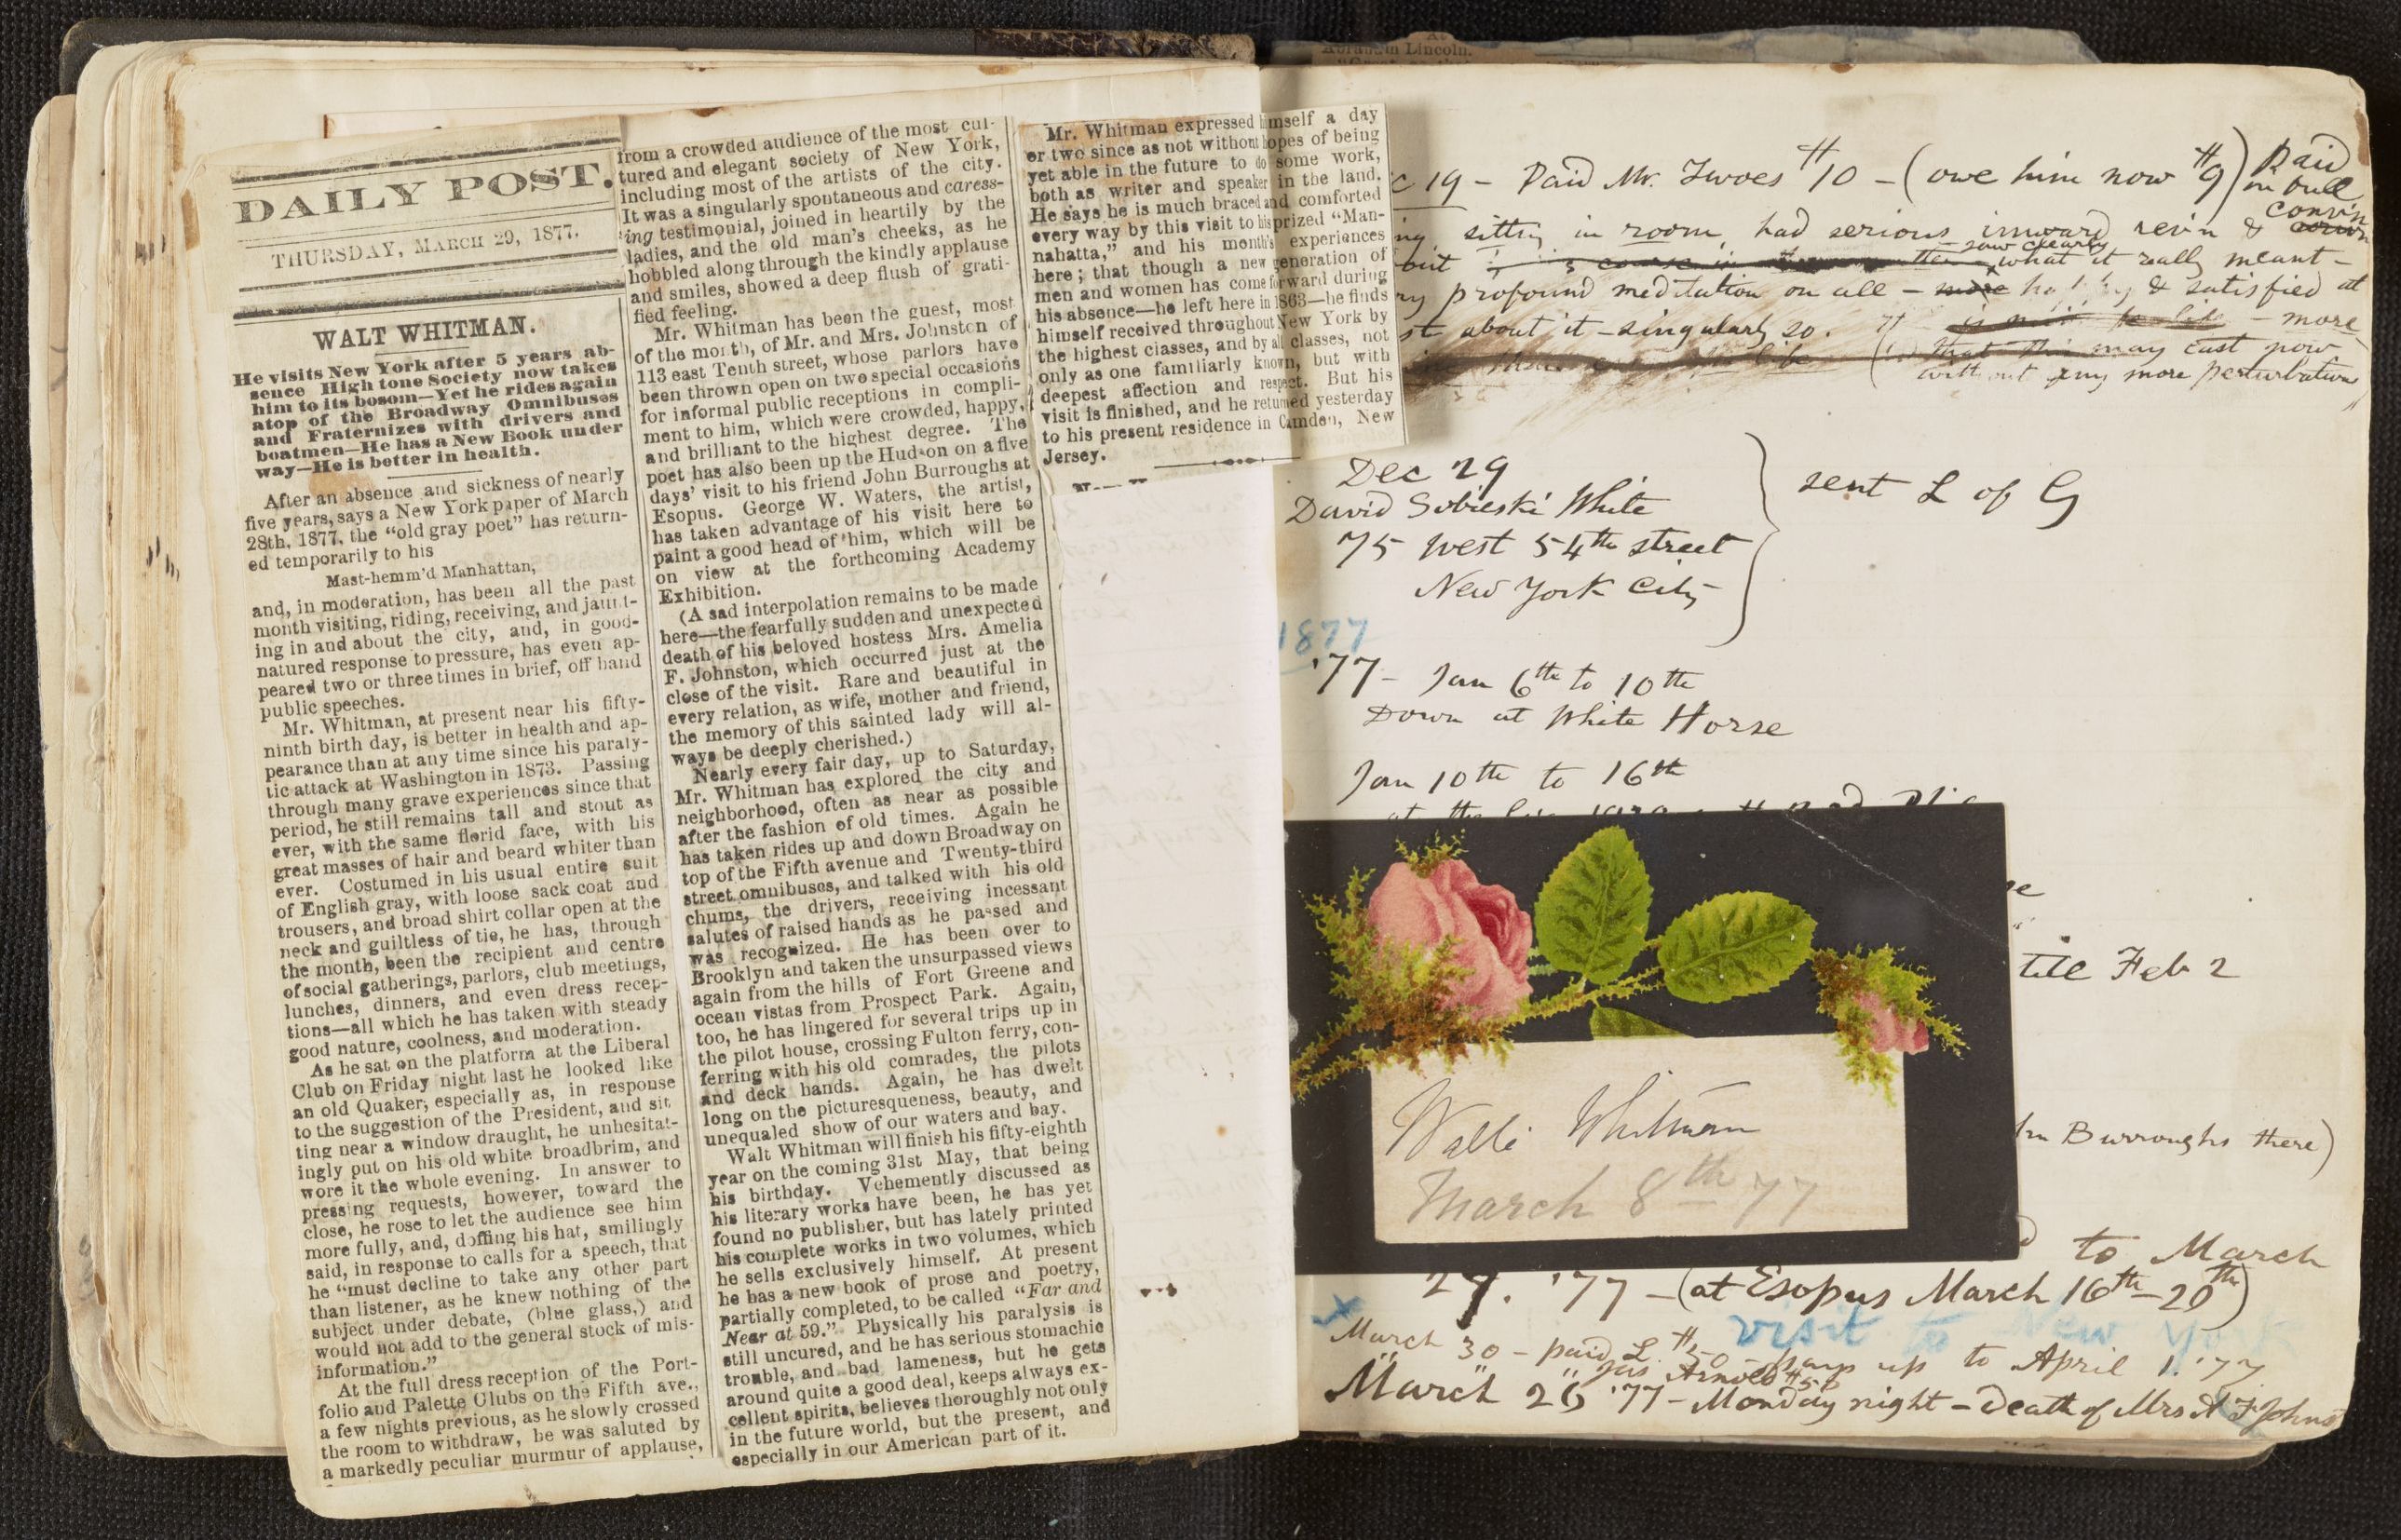 DAILY POST.
THURSDAY, MARCH 29, 1877.
WALT WHITMAN.
He visits New York after 5 years ab-
sence High tone Society now takes
him to its bosom—Yet he rides again
atop of the Broadway Omnibuses
and Fraternizes with drivers and
boatmen—He has a New Book under
way—He is better in health.
After an absence and sickness of nearly
five years, says a New York paper of March
28th, 1877, the “old gray poet” has return-
ed temporarily to his
Mast-hemm'd Manhattan,
and, in moderation, has been all the past
month visiting, riding, receiving, and jaunt-
ing in and about the city, and, in good-
natured response to pressure, has even ap-
peared two or three times in brief, off hand
public speeches.
Mr. Whitman, at present near his fifty-
ninth birth day, is better in health and ap-
pearance than at any time since his paraly-
tic attack at Washington in 1873. Passing
through many grave experiences since that
period, he still remains tall and stout as
ever, with the same florid face, with his
great masses of hair and beard whiter than
ever. Costumed in his usual entire suit
of English gray, with loose sack coat and
trousers, and broad shirt collar open at the
neck and guiltless of tie, he has, through
the month, been the recipient and centre
of social gatherings, parlors, club meetings,
lunches, dinners, and even dress recep-
tions—all which he has taken with steady
good nature, coolness, and moderation.
As he sat on the platform at the Liberal
Club on Friday night last he looked like
an old Quaker, especially as, in response
to the suggestion of the President, and sit
ting near a window draught, he unhesitat-
ingly put on his old white broadbrim, and
wore it the whole evening. In answer to
pressing requests, however, toward the
close, he rose to let the audience see him
more fully, and, doffing his hat, smilingly
said, in response to calls for a speech, that
he “must decline to take any other part
than listener, as he knew nothing of the
subject under debate, (blue glass,) and
would not add to the general stock of mis-
information.”
At the full dress reception of the Port-
folio and Palette Clubs on the Fifth ave.,
a few nights previous, as he slowly crossed
the room to withdraw, he was saluted by
a markedly peculiar murmur of applause,
from a crowded audience of the most cul-
tured and elegant society of New York,
including most of the artists of the city.
It was a singularly spontaneous and caress-
ing testimonial, joined in heartily by the
ladies, and the old man's cheeks, as he
hobbled along through the kindly applause
and smiles, showed a deep flush of grati-
fied feeling.
Mr. Whitman has been the guest, most
of the month, of Mr. and Mrs. Johnston of
113 east Tenth street, whose parlors have
been thrown open on two special occasions
for informal public receptions in compli-
ment to him, which were crowded, happy,
and brilliant to the highest degree. The
poet has also been up the Hudson on a five
days' visit to his friend John Burroughs at
Esopus. George W. Waters, the artist,
has taken advantage of his visit here to
paint a good head of him, which will be
on view at the forthcoming Academy
Exhibition.
(A sad interpolation remains to be made
here—the fearfully sudden and unexpected
death of his beloved hostess Mrs. Amelia
F. Johnston, which occurred just at the
close of the visit. Rare and beautiful in
every relation, as wife, mother and friend,
the memory of this sainted lady will al-
ways be deeply cherished.)
Nearly every fair day, up to Saturday,
Mr. Whitman has explored the city and
neighborhood, often as near as possible
after the fashion of old times. Again he
has taken rides up and down Broadway on
top of the Fifth avenue and Twenty-third
street omnibuses, and talked with his old
chums, the drivers, receiving incessant
salutes of raised hands as he passed and
was recognized. He has been over to
Brooklyn and taken the unsurpassed views
again from the hills of Fort Greene and
ocean vistas from Prospect Park. Again,
too, he has lingered for several trips up in
the pilot house, crossing Fulton ferry, con-
ferring with his old comrades, the pilots
and deck hands. Again, he has dwelt
long on the picturesqueness, beauty, and
unequaled show of our waters and bay.
Walt Whitman will finish his fifty-eighth
year on the coming 31st May, that being
his birthday. Vehemently discussed as
his literary works have been, he has yet
found no publisher, but has lately printed
his complete works in two volumes, which
he sells exclusively himself. At present
he has a new book of prose and poetry,
partially completed, to be called “Far and
Near at 59.” Physically his paralysis is
still uncured, and he has serious stomachic
trouble, and bad lameness, but he gets
around quite a good deal, keeps always ex-
cellent spirits, believes thoroughly not only
in the future world, but the present, and
especially in our American part of it.
Mr. Whitman expressed himself a day
or two since as not without hopes of being
yet able in the future to do some work,
both as writer and speaker in the land.
He says he is much braced and comforted
every way by this visit to his prized “Man-
nahatta,” and his month's experiences
here; that though a new generation of
men and women has come forward during
his absence—he left here in 1863—he finds
himself received throughout New York by
the highest classes, and by all classes, not
only as one familiarly known, but with
deepest affection and respect. But his
visit is finished, and he returned yesterday
to his present residence in Camden, New
Jersey.
Abraham Lincoln.
c 19 - Paid Mr. #10 - (owe him now #9) Paid
in full
sitting in room had serious inward rev'n & conv'n
saw clearly
out what it really meant -
profound meditation on all - & satisfied at
st about it - singularly so. - more
that this may last now
without any more perturbation
Dec 29
David Sobieski White
75 West 54th street
New York City
sent L of G
1877
'77 - Jan 6th to 10th
Down at White Horse
Jan 10th to 16th
till Feb 2
Burroughs there)
Walt Whitman
March 8th 77
to March
27. '77 - (at Esopus March 16th - 20th)
visit to New York
March 30 - paid up to April 1. '77
Jas Arnold
March 26 '77 - Monday night - Death of Mrs A F Johns